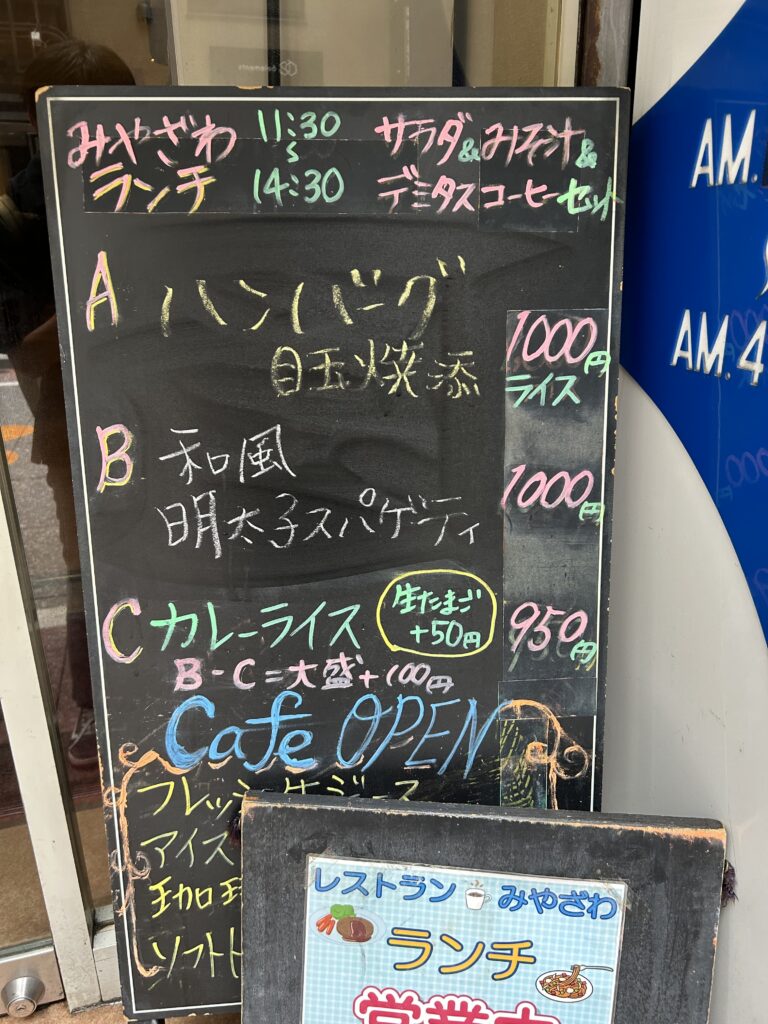 みやざわ 11:30 サラダ&みそ汁&
ランチ 〜 14:30 デミタスコーヒーセット
A ハンバーグ
目玉焼添
1000円
ライス
B 和風
明太子スパゲティ
1000円
C カレーライス
生たまご
+50円
950円
B-C=大盛+100円
Cafe OPEN
フレッシュ生ジュース
アイス
珈琲
ソフト
レストラン みやざわ
ランチ
営業中
AM.
AM.4